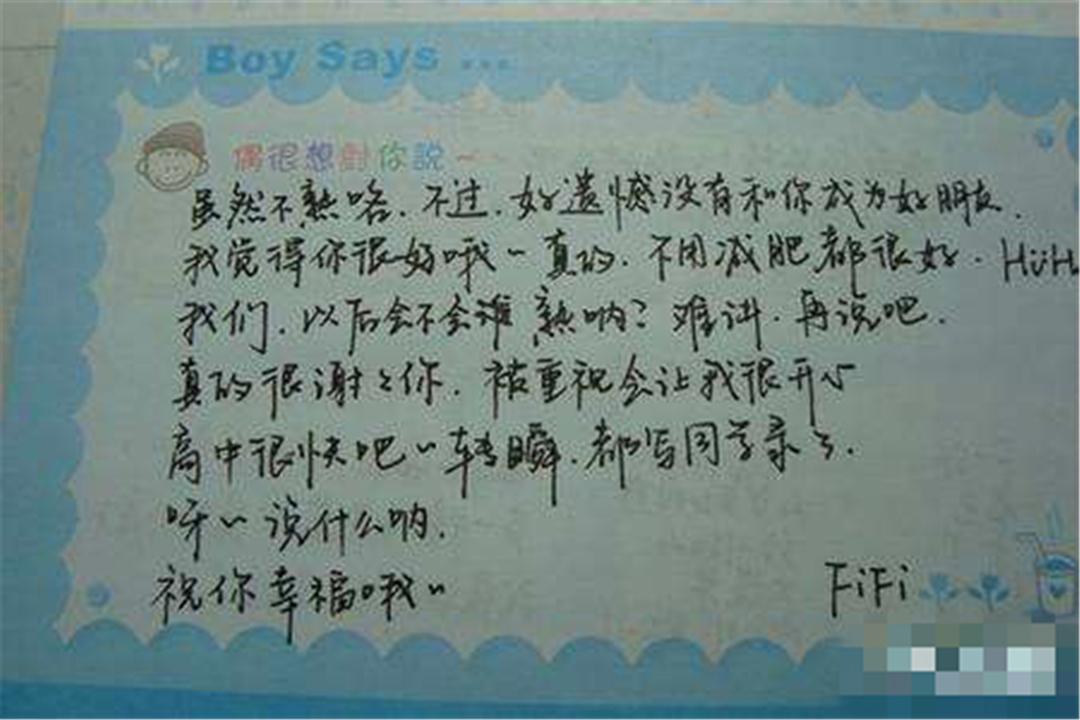 Boy Says ...
偶很想對你說~
虽然不熟咯.不过.好遗憾没有和你成为好朋友.
我觉得你很好哦~真的.不用减肥都很好.HüH
我们.以后会不会准熟呐?难讲.再说吧.
真的很谢々你.被重视会让我很开心
高中很快吧~转瞬.都写同学录了.
呀~说什么呐.
祝你幸福哦~
FiFi